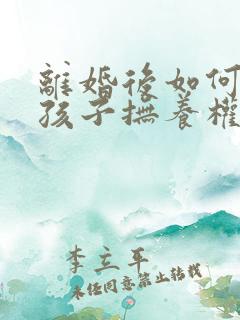 離婚後如何
孩子撫養權
李立平
未任同意禁止轉載